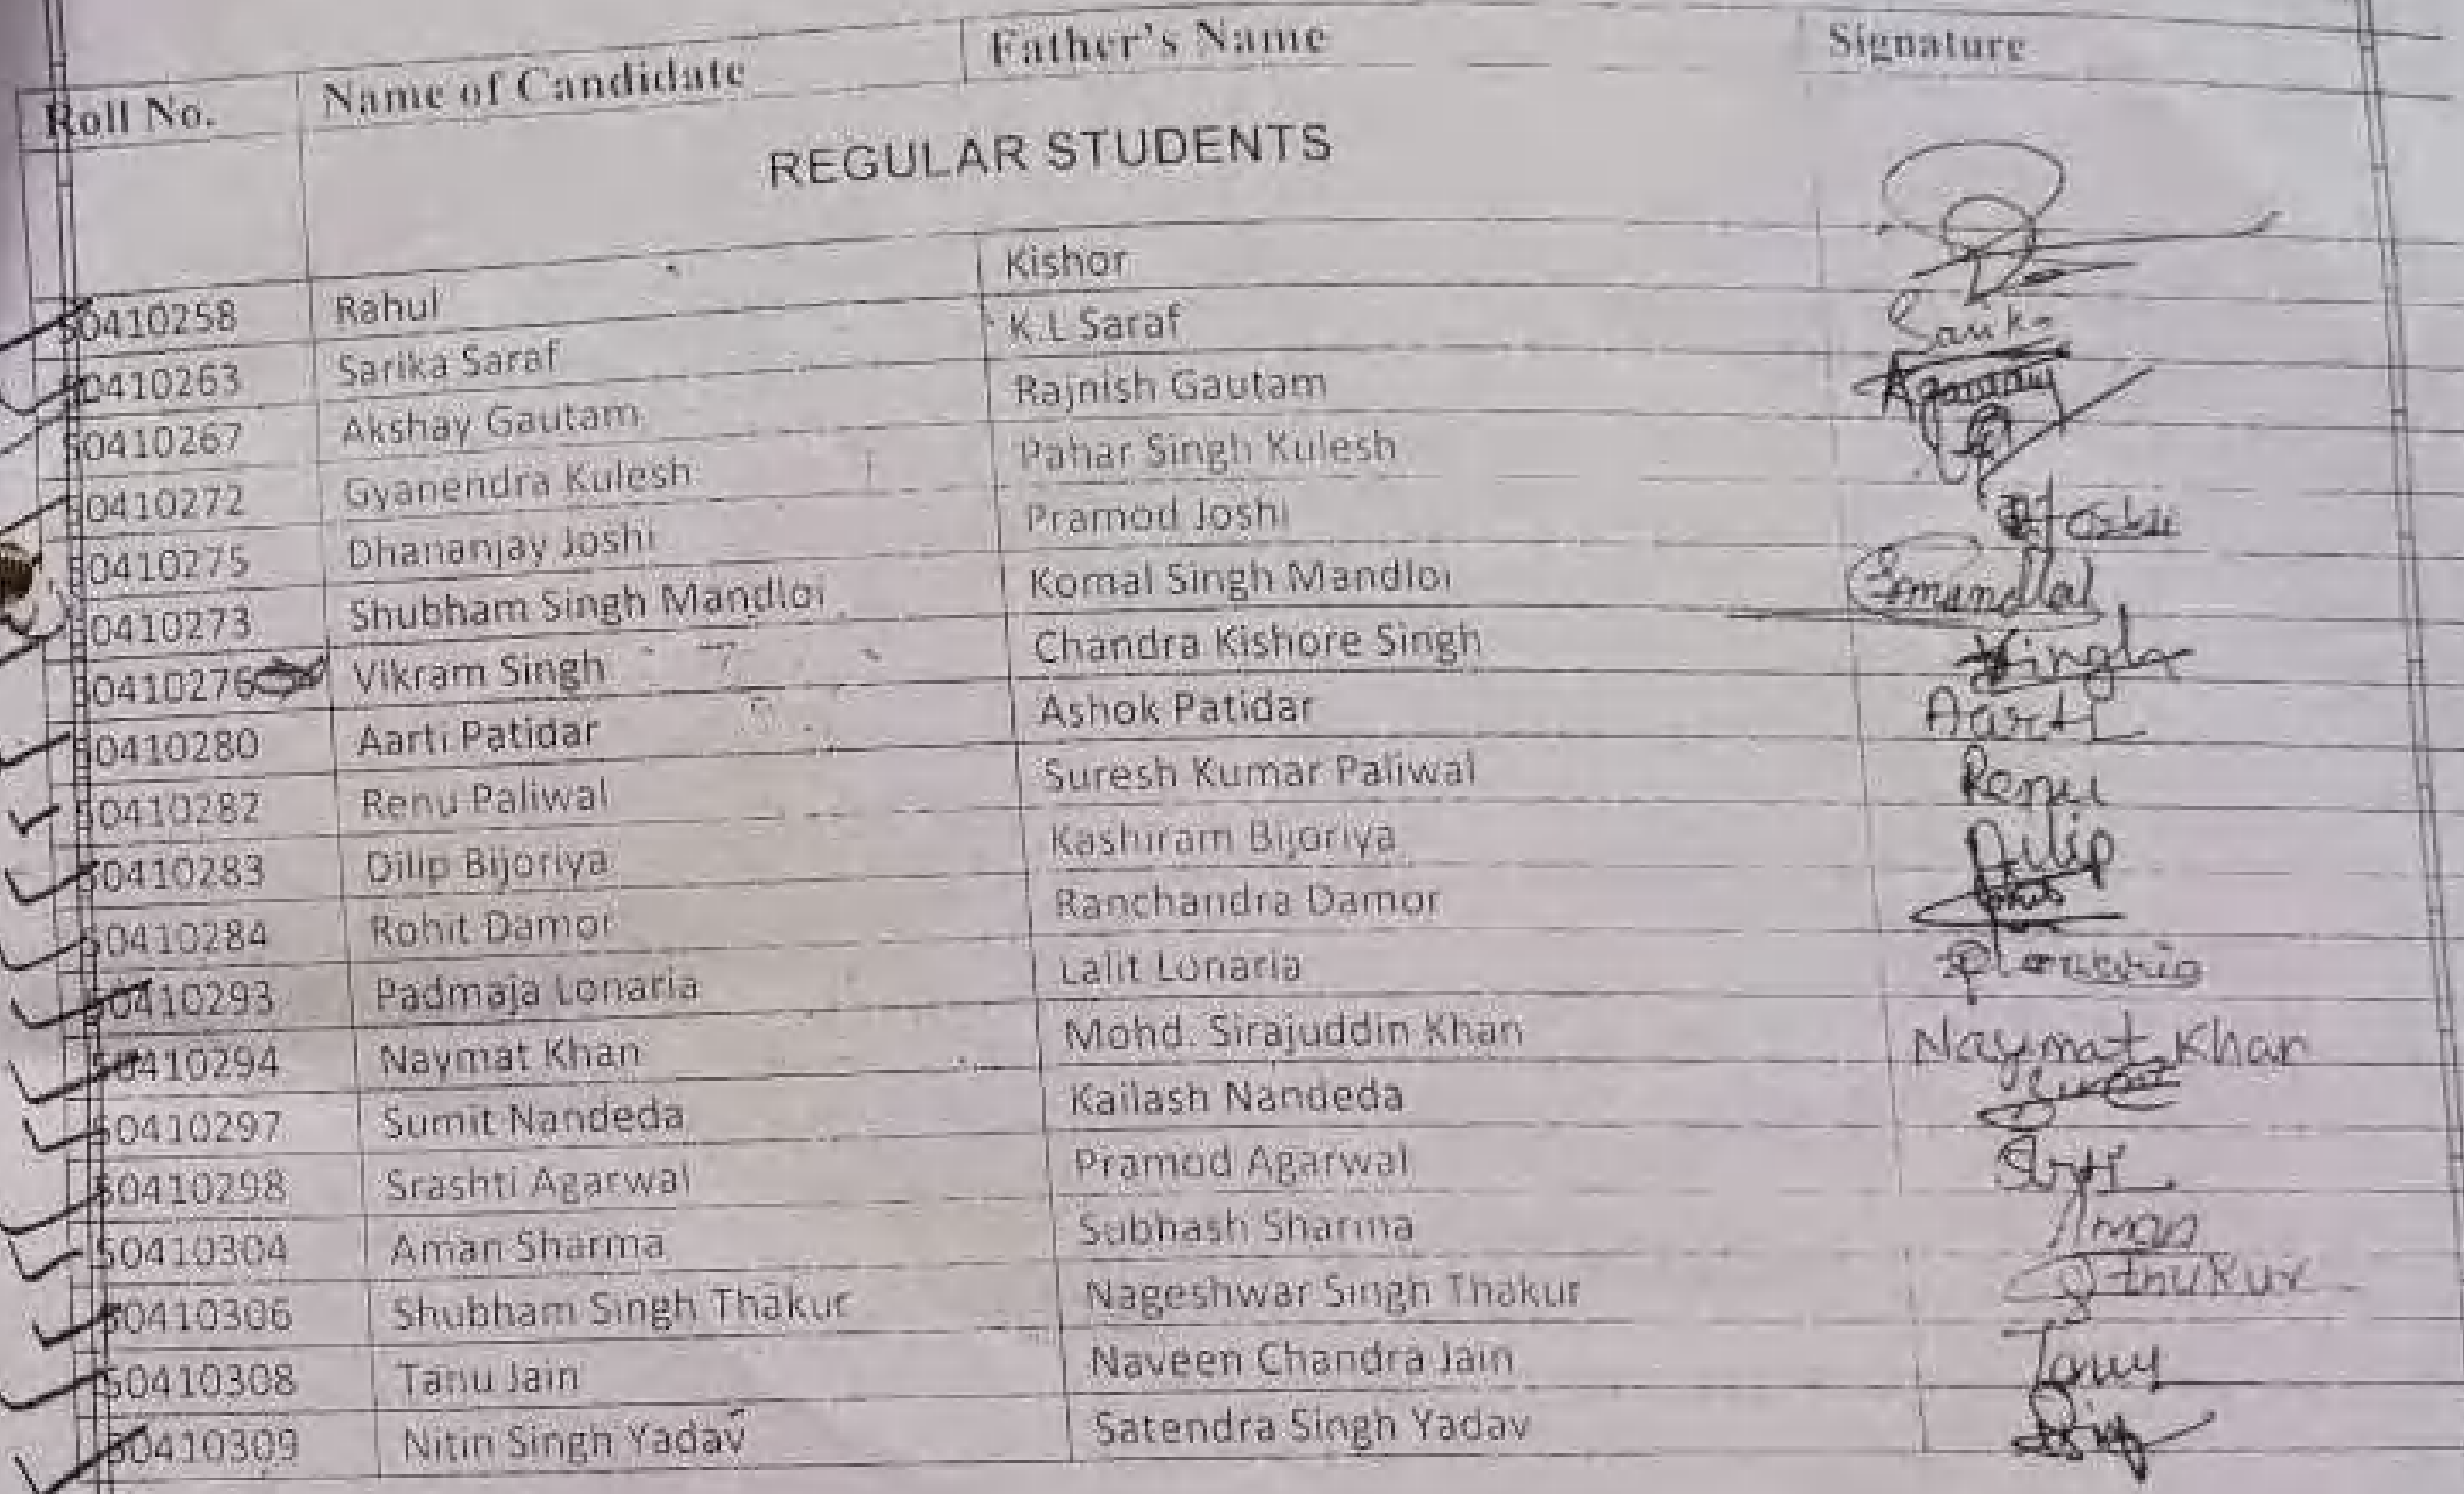 Roll No. Name of Candidate Father's Name Signature
REGULAR STUDENTS
50410258 Rahul Kishor
50410263 Sarika Saraf K.L Saraf Sarika
50410267 Akshay Gautam Rajnish Gautam
50410272 Gyanendra Kulesh Pahar Singh Kulesh
50410275 Dhananjay Joshi Pramod Joshi
50410273 Shubham Singh Mandloi Komal Singh Mandloi
50410276 Vikram Singh Chandra Kishore Singh
50410280 Aarti Patidar Ashok Patidar Aarti
50410282 Renu Paliwal Suresh Kumar Paliwal Renu
50410283 Dilip Bijoriya Kashiram Bijoriya Dilip
50410284 Rohit Damor Ranchandra Damor
50410293 Padmaja Lonaria Lalit Lonaria
50410294 Naymat Khan Mohd. Sirajuddin Khan Naymat Khan
50410297 Sumit Nandeda Kailash Nandeda
50410298 Srashti Agarwal Pramod Agarwal
50410304 Aman Sharma Subhash Sharma Aman
50410306 Shubham Singh Thakur Nageshwar Singh Thakur
50410308 Tanu Jain Naveen Chandra Jain
50410309 Nitin Singh Yadav Satendra Singh Yadav